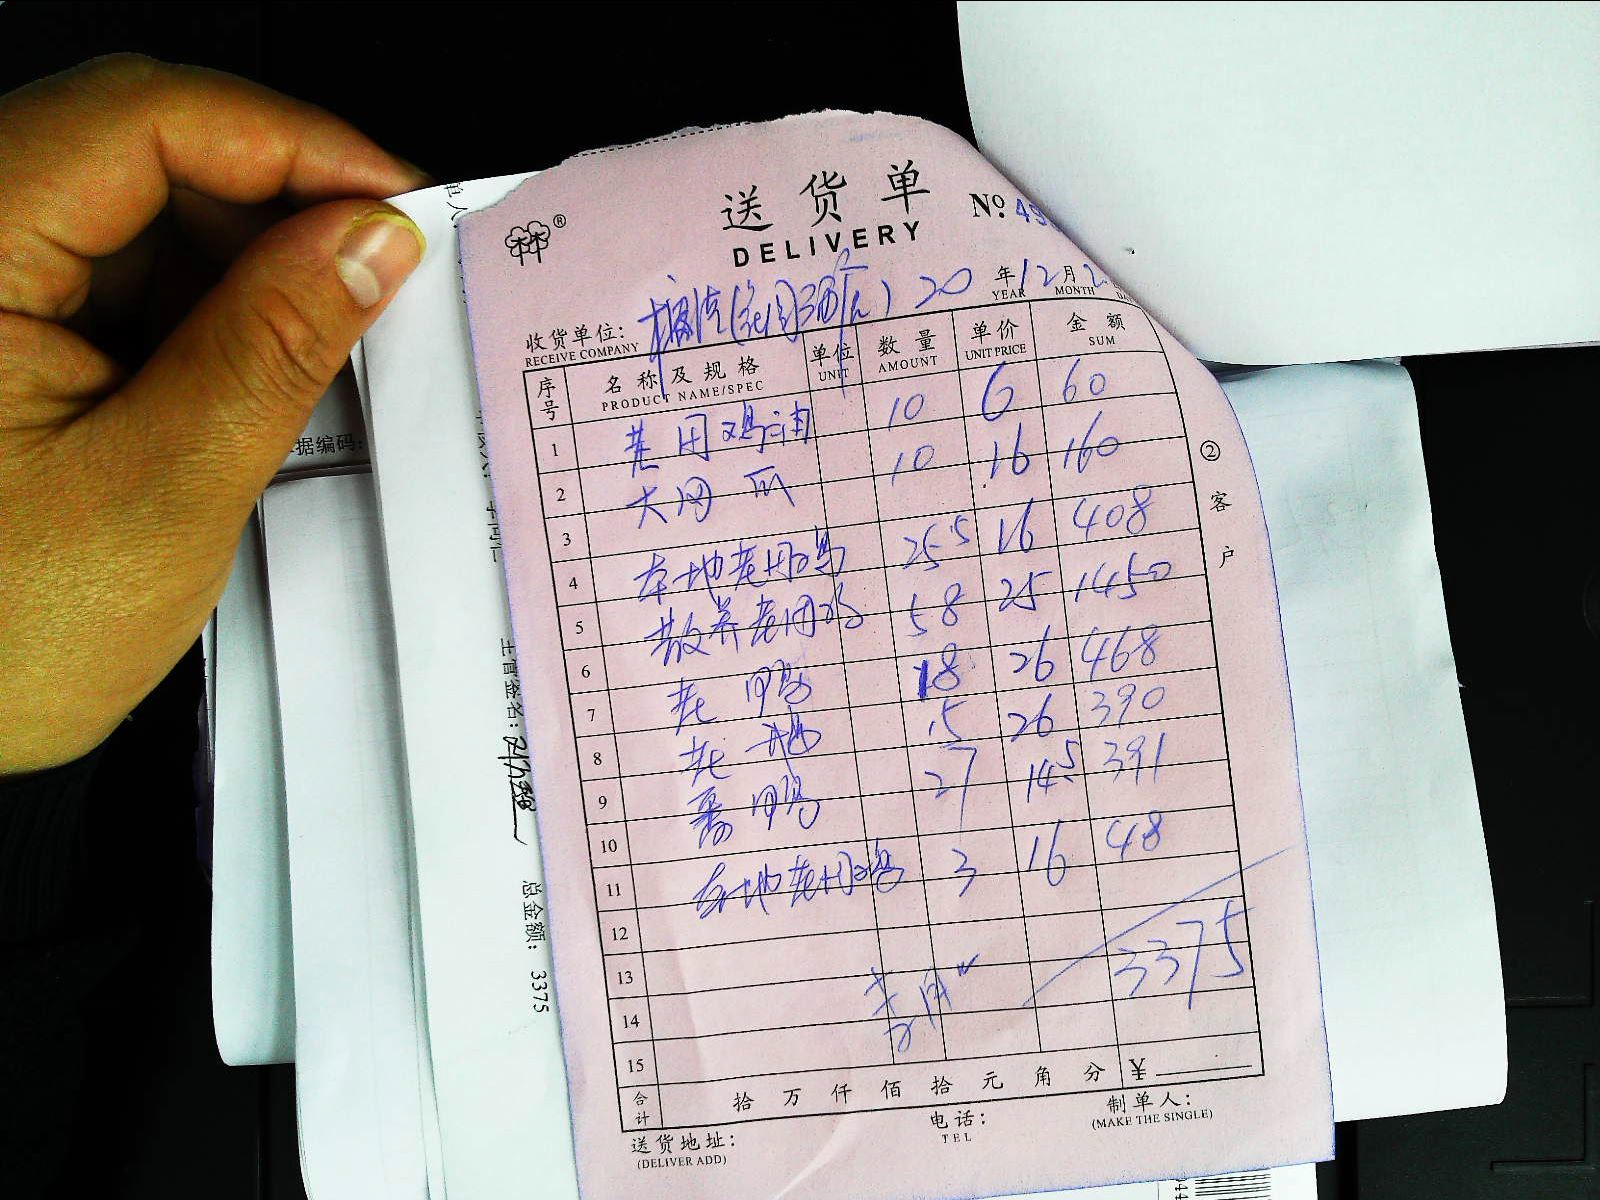 送货单
DELIVERY
№ 49
收货单位:
RECEIVE COMPANY
20 年 12 月 2
YEAR MONTH
序号 名称及规格 单位 数量 单价 金额
PRODUCT NAME/SPEC UNIT AMOUNT UNIT PRICE SUM
1 10 6 60
2 10 16 160
3 本地老用鸡 25.5 16 408
4 散养老用鸡 58 25 1450
5 老鸭 18 26 468
6 老鹅 15 26 390
7 番鸭 27 14.5 391
8 本地老用鸡 3 16 48
9
10
11
12
13 3375
14
15
合计 拾 万 仟 佰 拾 元 角 分 ¥
送货地址:
(DELIVER ADD)
电话:
TEL
制单人:
(MAKE THE SINGLE)
②客户
据编码:
主管签名:
总金额: 3375